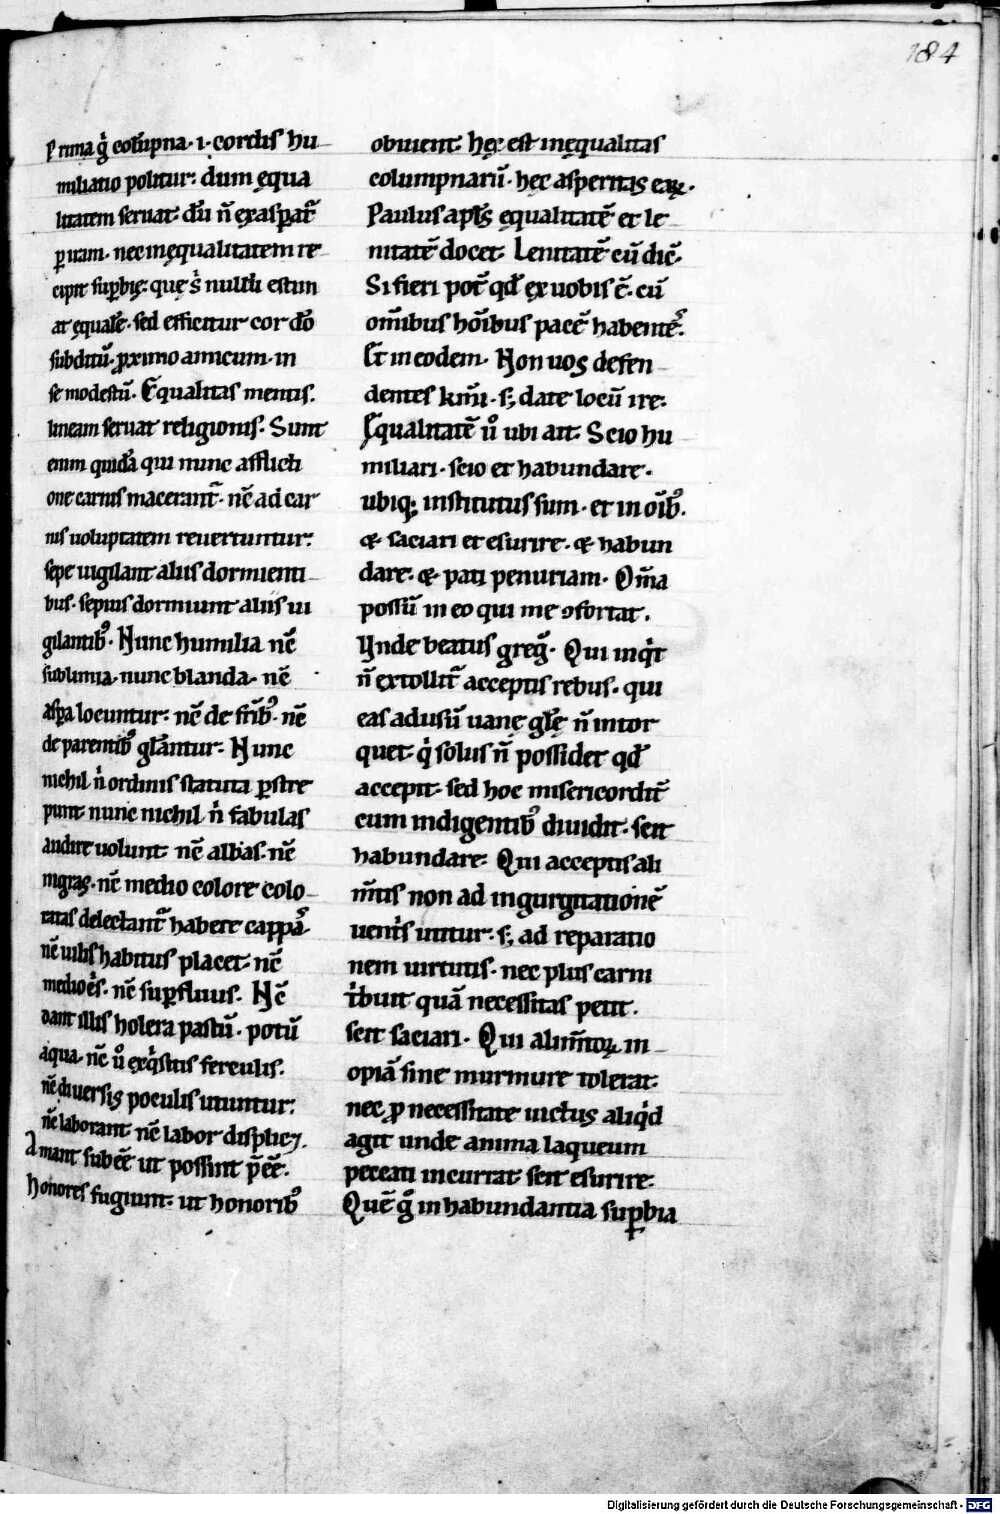 184
Prima g̊ colũpna · i · cordis hu
miliatio politur: dum ęqua
litatem seruat: dũ ñ exaspat᷑
p iram · nec inęqualitatem re
cipit supbię: quę s̉ nulli estim
at ęqualẽ · sed efficitur cor dõ
subditũ · pximo amicum · in
se modestũ · Equalitas mentis
lineam seruat religionis: Sunt
enim quidã qui nunc afflicti
one carnis macerant᷑ · nc̃ ad car
nis uoluptatem reuertuntur:
sepe uigilant aliis dormienti
bus · sepius dormiunt aliis ui
gilantib᷒ · Nunc humilia nc̃
sublimia · nunc blanda · nc̃
aspa locuntur: nc̃ de fr̃ib᷒ · nc̃
de parentib᷒ gl̃antur: Nunc
nichil n̉ ordinis statuta pstre
punt · nunc nichil n̉ fabulas
audire uolunt: nc̃ albas · nc̃
nigras · nc̃ medio colore colo
ratas delectant᷑ habere cappas̃ ·
nc̃ uilis habitus placet · nc̃
mediocr̉s · nc̃ supfluus · Nc̃
dant illis holera pastũ · potũ
aqua · nc̃ ů exq̉sitis ferculis ·
nc̃ diuersis poculis utuntur:
nc̃ laborant · nc̃ labor displicꝫ ·
Amant subẽe ut possint p̃ẽe ·
honores fugiunt: ut honorib᷒
obuient: hęc est inęqualitas
columpnarũ · hęc asperitas eaꝝ ·
Paulus apl̃s ęqualitatẽ et le
nitatẽ docet · Lenitatẽ cũ dic̃ ·
Si fieri pot̃ qđ ex uobis ẽ · cũ
om̃ibus hõibus pacẽ habentes̃ ·
Et in eodem · Non uos defen
dentes km̃i · sꝫ date locũ ire:
Equalitatẽ ů ubi ait: Scio hu
miliari · scio et habundare ·
ubiqꝫ institutus sum · et in õib᷒ ·
& saciari et esurire · & habun
dare · & pati penuriam · Om̃a
possũ in eo qui me ꝯfortat ·
Vnde beatus greg̃ · Qui inq̉t
ñ extollit᷑ acceptis rebus · qui
eas ad usũ uanę gl̃ę ñ intor
quet · q̉ solus ñ possidet qđ
accepit · sed hoc misericordit᷑
cum indigentib᷒ diuidit · scit
habundare: Qui acceptis ali
m̃tis non ad ingurgitationẽ
uentr̉s utitur: sꝫ ad reparatio
nem uirtutis · nec plus carni
tr̉buit quã necessitas petit ·
scit saciari · Qui alim̃toꝝ in
opiã sine murmure tolerat:
nec ꝓ necessitate uictus aliq̉d
agit unde anima laqueum
peccati incurrat: scit esurire:
Quẽ g̊ in habundantia supbia
Digitalisierung gefördert durch die Deutsche Forschungsgemeinschaft - DFG